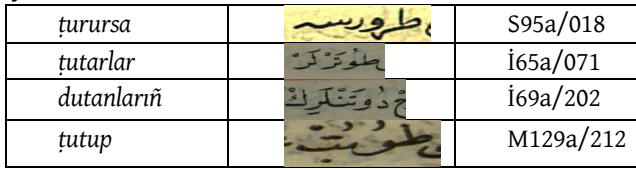 ṭurursa طرورسه S95a/018
ṭutarlar طُوتَرْلَرْ İ65a/071
dutanlarıñ دُوتَنْلَرِكْ İ69a/202
ṭutup طُوتُبْ M129a/212